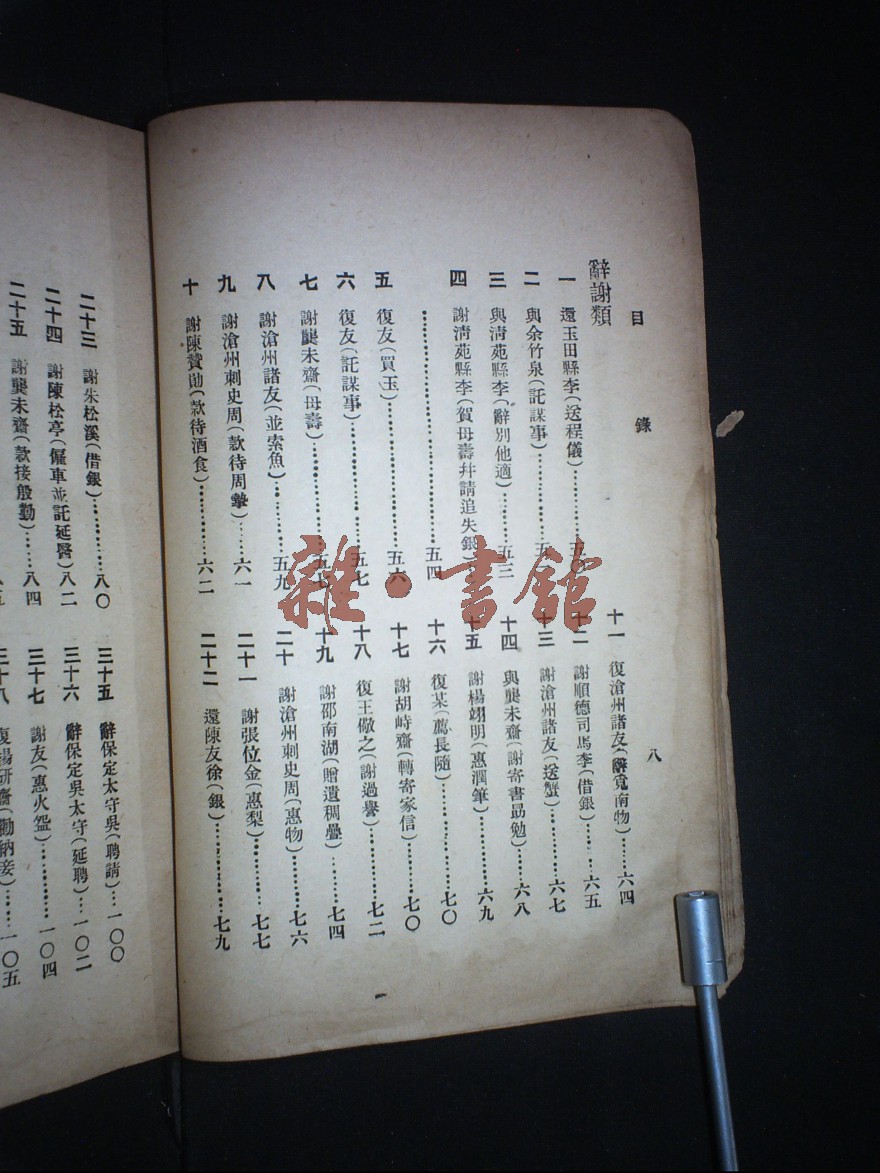 目　錄　八
辭謝類
一　還玉田縣李(送程儀)
二　與余竹泉(託謀事)
三　與淸苑縣李(辭別他適)……五三
四　謝淸苑縣李(賀母壽幷請追失銀)
……五四
五　復友(買玉)……五六
六　復友(託謀事)……五七
七　謝龔未齋(母壽)……五七
八　謝滄州諸友(並索魚)……五九
九　謝滄州刺史周(款待周摯)……六一
十　謝陳贊勛(款待酒食)……六二
十一　復滄州諸友(辭覓南物)……六四
十二　謝順德司馬李(借銀)……六五
十三　謝滄州諸友(送蟹)……六七
十四　與龔未齋(謝寄書勗勉)……六八
十五　謝楊翊明(惠潤筆)……六九
十六　復某(薦長隨)……七〇
十七　謝胡峙齋(轉寄家信)……七〇
十八　復王儆之(謝過譽)……七二
十九　謝邵南湖(贈遺稠疊)……七四
二十　謝滄州刺史周(惠物)……七六
二十一　謝張位金(惠梨)……七七
二十二　還陳友徐(銀)……七九
二十三　謝朱松溪(借銀)……八〇
二十四　謝陳松亭(僱車並託延醫)八二
二十五　謝龔未齋(款接殷勤)……八四
三十五　辭保定太守吳(聘請)…一〇〇
三十六　辭保定吳太守(延聘)…一〇二
三十七　謝友(惠火盌)……一〇四
三十八　復楊硏齋(勸納妾)……一〇五
雜·書館